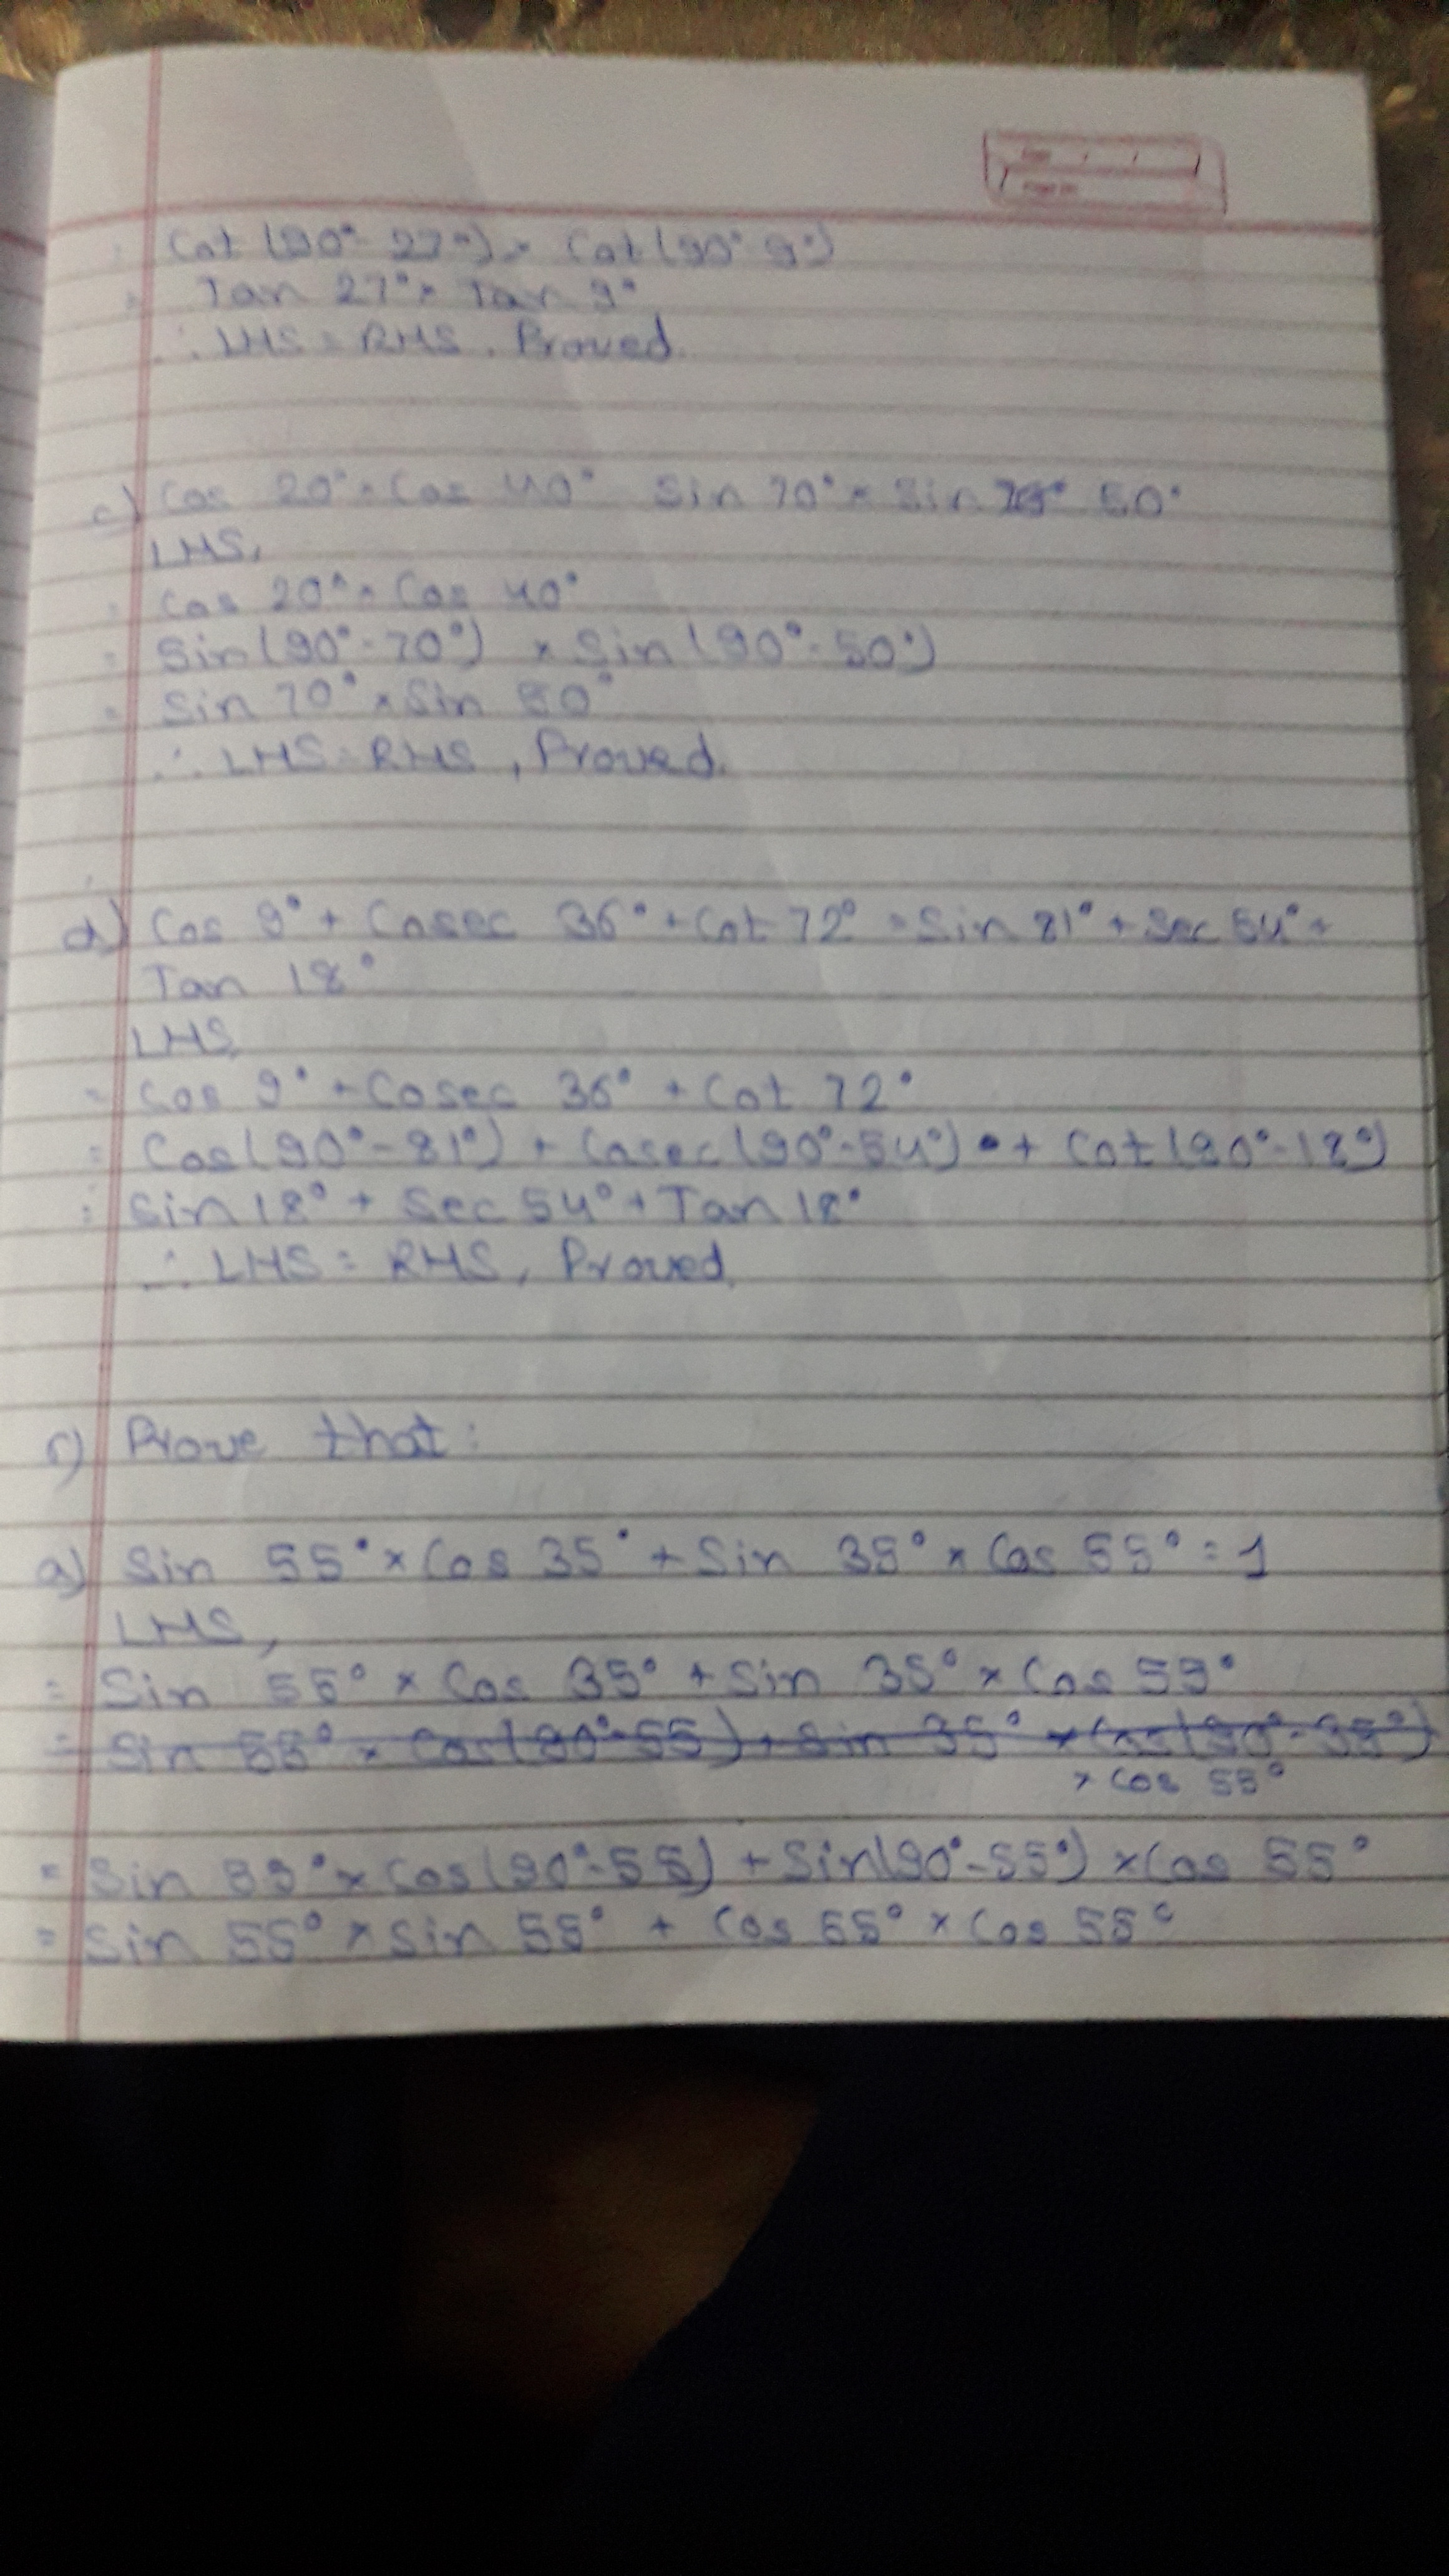 = Cot (90°-27°) × Cot (90°-9°)
= Tan 27° × Tan 9°
∴ LHS = RHS. Proved.
c) Cos 20° × Cos 40° Sin 70° × Sin 50°
LHS,
= Cos 20° × Cos 40°
= Sin (90°-70°) × Sin (90°-50°)
= Sin 70° × Sin 50°
∴ LHS = RHS, Proved.
d) Cos 9° + Cosec 36° + Cot 72° = Sin 81° + Sec 54° +
Tan 18°
LHS,
= Cos 9° + Cosec 36° + Cot 72°
= Cos (90°-81°) + Cosec (90°-54°) + Cot (90°-18°)
= Sin 18° + Sec 54° + Tan 18°
∴ LHS = RHS, Proved.
5) Prove that:
a) Sin 55° × Cos 35° + Sin 35° × Cos 55° = 1
LHS,
= Sin 55° × Cos 35° + Sin 35° × Cos 55°
= Sin 55° × Cos (90°-55) + Sin 35° × Cos (90°-35°)
× Cos 55°
= Sin 55° × Cos (90°-55) + Sin (90°-55°) × Cos 55°
= Sin 55° × Sin 55° + Cos 55° × Cos 55°